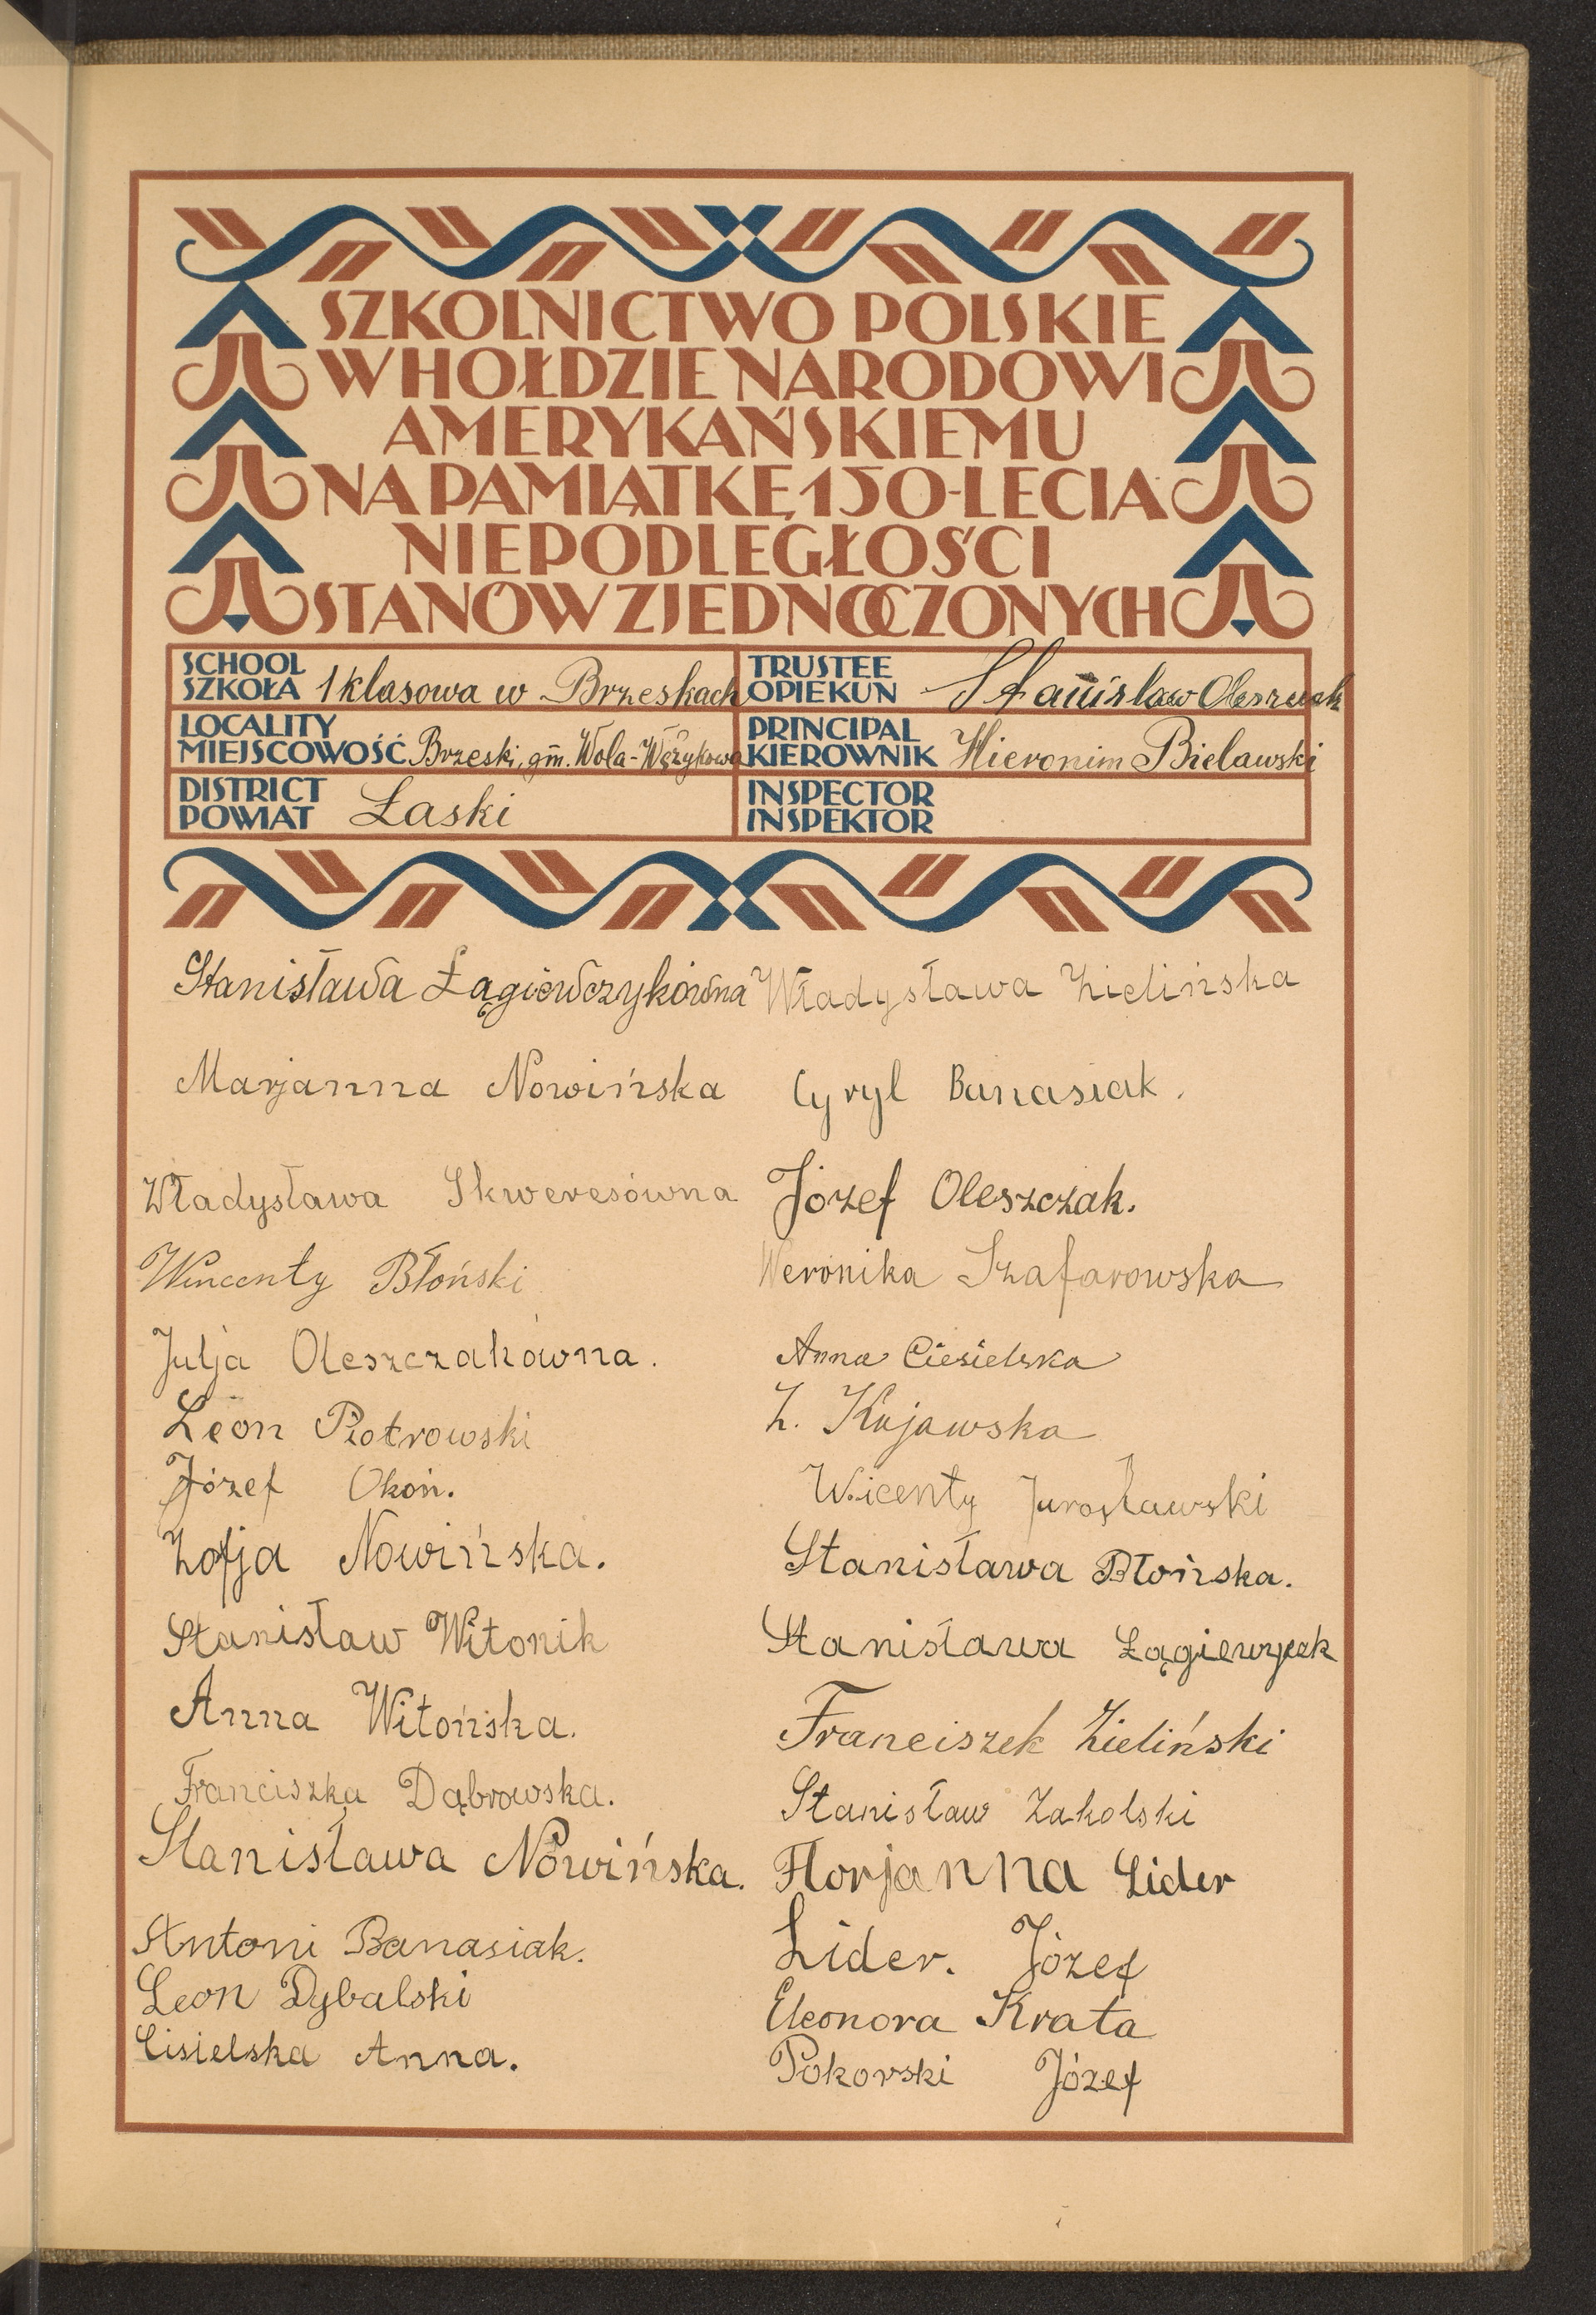 SZKOLNICTWO POLSKIE
W HOŁDZIE NARODOWI
AMERYKAŃSKIEMU
NA PAMIĄTKĘ 150-LECIA
NIEPODLEGŁOŚCI
STANÓW ZJEDNOCZONYCH
SCHOOL
SZKOŁA 1 klasowa w Brzeskach
LOCALITY
MIEJSCOWOŚĆ Brzeski, gm. Wola-Wężykowa
DISTRICT
POWIAT Łaski
TRUSTEE
OPIEKUN Stanisław
PRINCIPAL
KIEROWNIK Hieronim Bielawski
INSPECTOR
INSPEKTOR
Stanisława Łagiewczykówna
Marjanna Nowińska
Władysława Skweresówna
Wincenty Błoński
Julja Oleszczakówna.
Leon Piotrowski
Józef Okoń.
Zofja Nowińska.
Stanisław Witonik
Anna Witońska.
Franciszka Dąbrowska.
Stanisława Nowińska.
Antoni Banasiak.
Leon Dybalski
Cisielska Anna.
Władysława Zielińska
Cyryl Banasiak.
Józef Oleszczak.
Weronika Szafarowska
Anna Ciesielska
Z. Kujawska
Wicenty Jurosławski
Stanisława Błońska.
Stanisława
Franciszek Zieliński
Stanisław Zakolski
Florjanna Lider
Lider. Józef
Eleonora Krata
Pokorski Józef